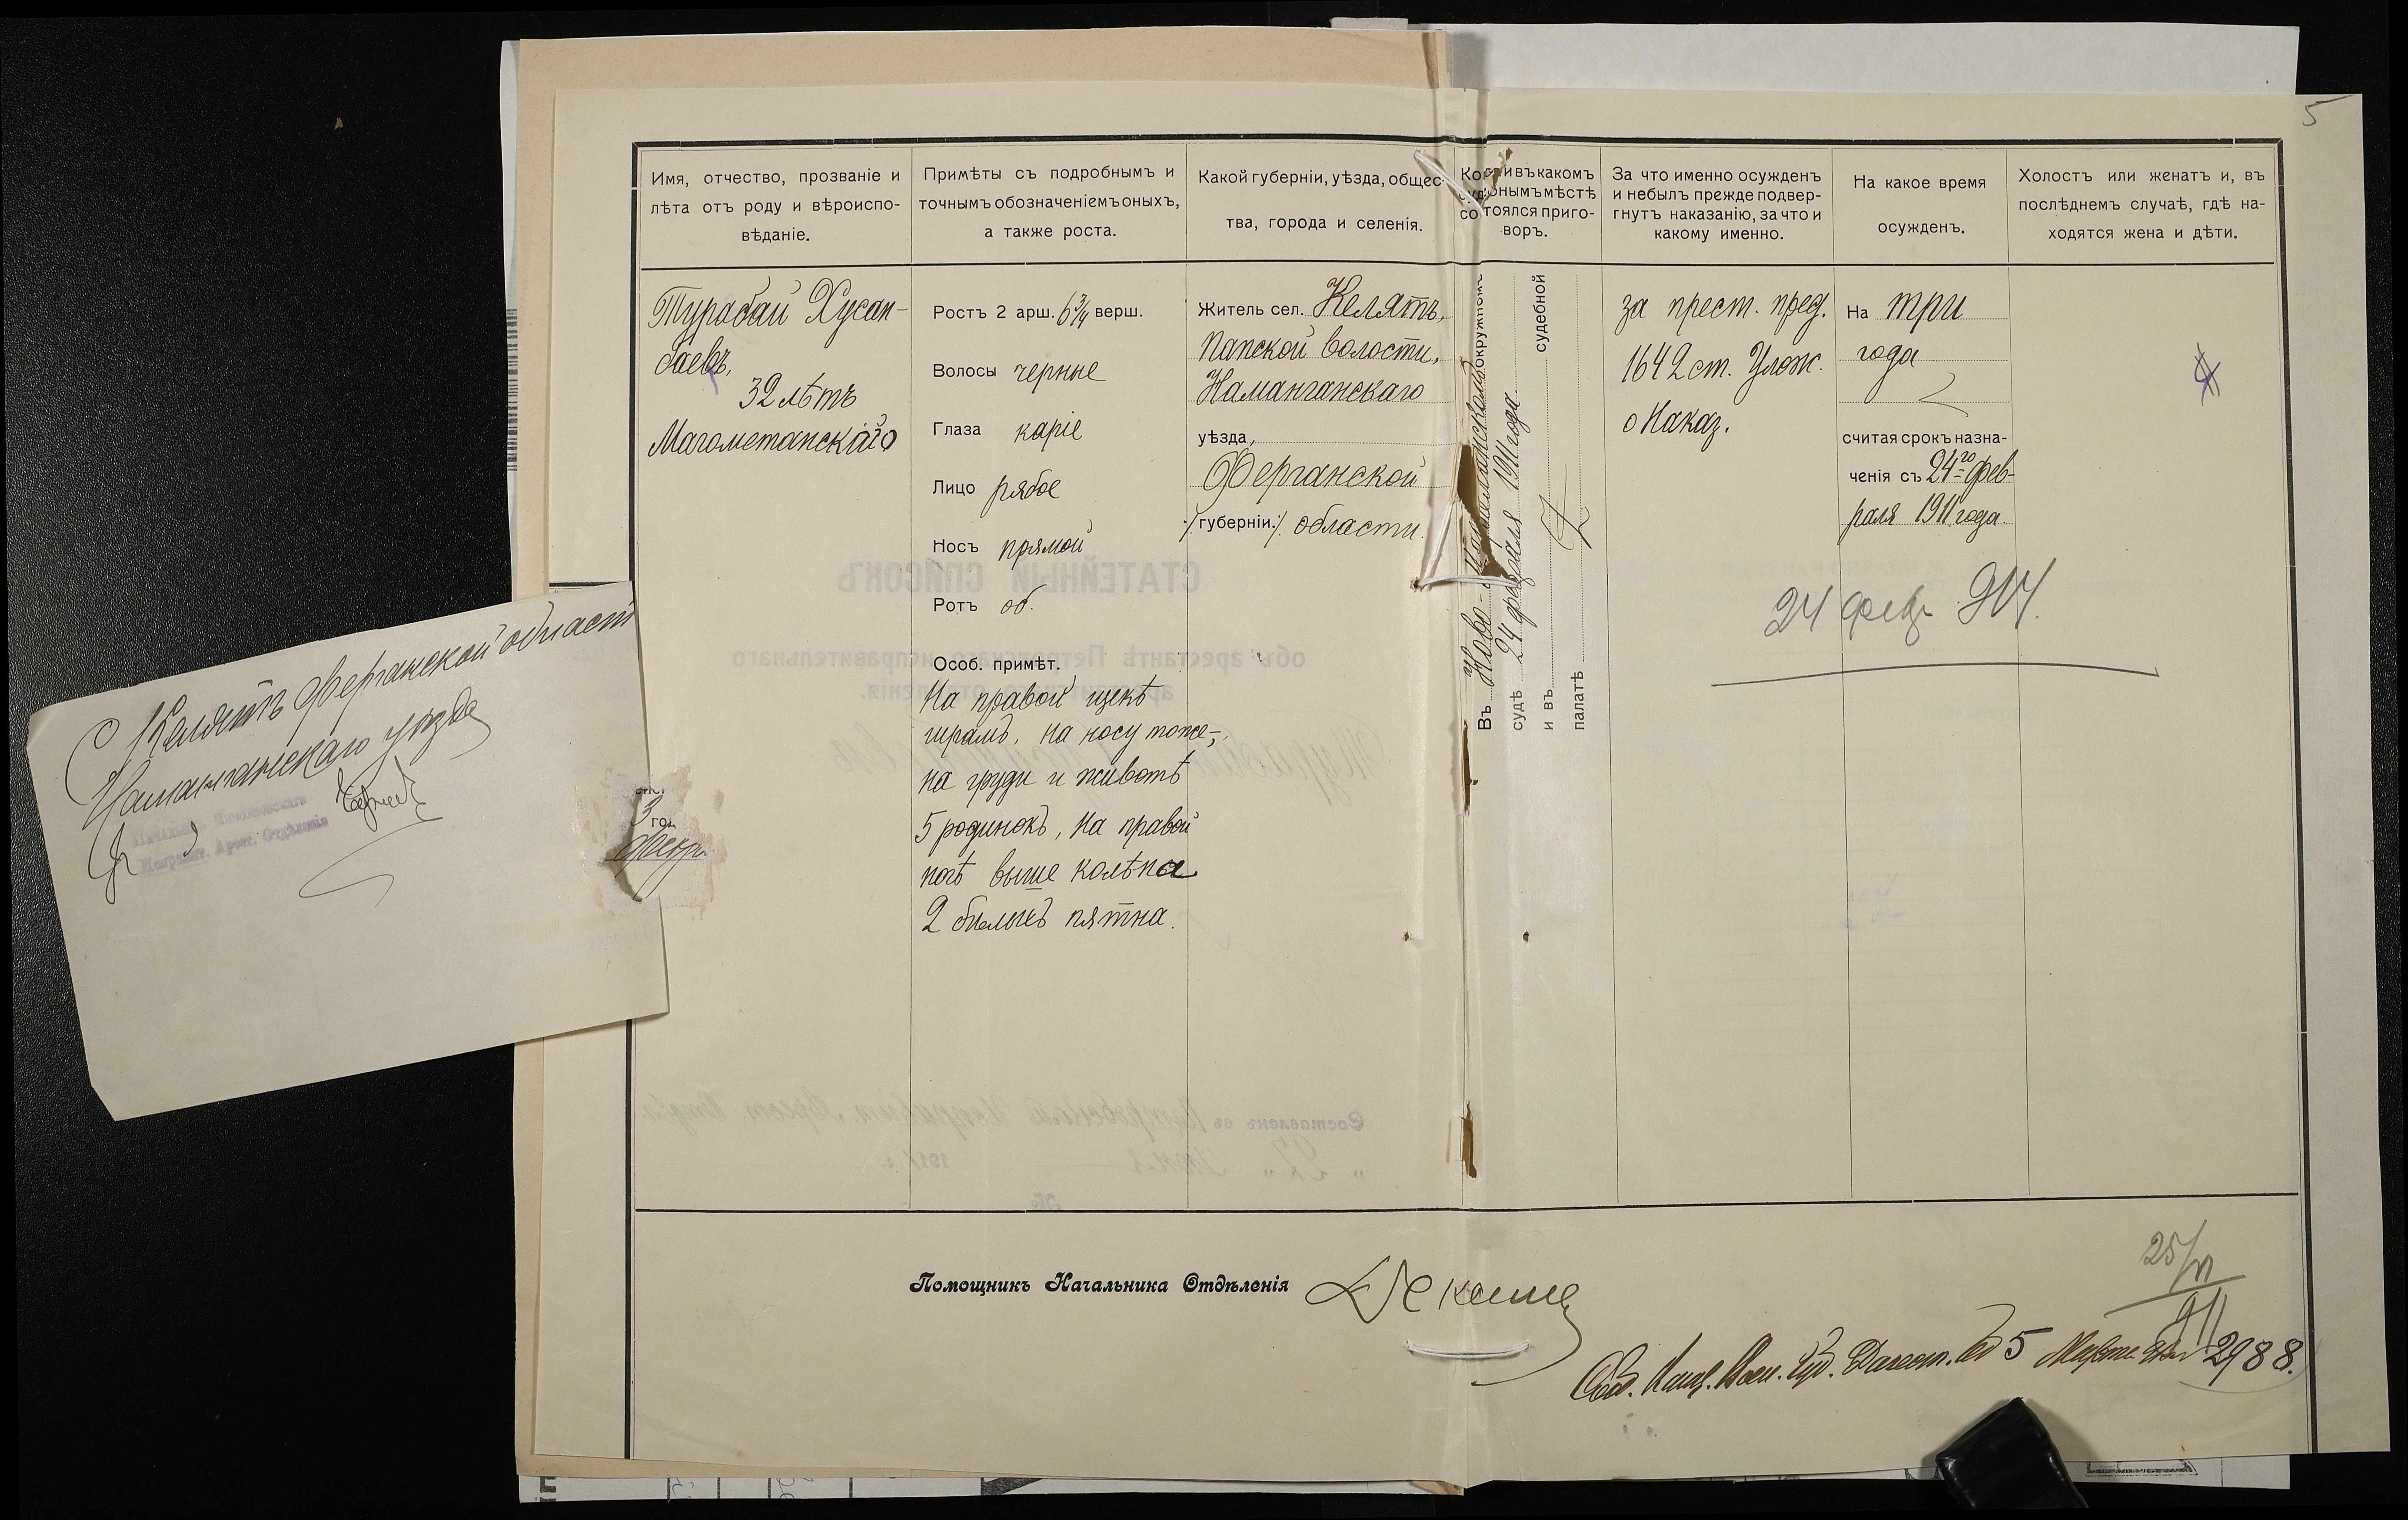 5
Имя, отчество, прозваніе и
лѣта отъ роду и вѣроиспо-
вѣданіе.
Примѣты съ подробнымъ и
точнымъ обозначеніемъ оныхъ,
а также роста.
Какой губерніи, уѣзда, общес-
тва, города и селенія.
и въ какомъ
мѣстѣ
состоялся приго-
воръ.
За что именно осужденъ
и небылъ прежде подвер-
гнутъ наказанію, за что и
какому именно.
На какое время
осужденъ.
Холостъ или женатъ и, въ
послѣднемъ случаѣ, гдѣ на-
ходятся жена и дѣти.
Турабай Хусан-
баевъ,
32 лѣтъ
Магометанскаго
Ростъ 2 арш. 6 3/4 верш.
Волосы черные
Глаза каріе
Лицо рябое
Носъ прямой
Ротъ об.
Особ. примѣт.
На правой щекѣ
шрамъ, на носу тоже,
на груди и животѣ
5 родинокъ, на правой
ногѣ выше колѣна
2 бѣлыхъ пятна.
Житель сел. Келятъ,
Папской волости,
Наманганскаго
уѣзда,
Ферганской
губерніи. области.
Въ Ново-Маргеланскомъ окружномъ
судѣ 24 февраля 1911 года
и въ судебной
палатѣ
за прест. пред.
1642 ст. Улож.
о Наказ.
На три
года
считая срокъ назна-
ченія съ 24го фев-
раля 1911 года.
24 февр 914.
С Келятъ Ферганской област
Наманганскаго уѣзда
Начальникъ
Исправит. Арест. Отдѣленія
3 год
Февр.
СТАТЕЙНЫЙ СПИСОКЪ
объ арестантѣ Петровскаго исправительнаго
арестантскаго отдѣленія.
Составленъ въ Петровскомъ Исправит. Арест. Отдѣл.
1911 г.
Помощникъ Начальника Отдѣленія
25/VI
911
5 Марта 2988.